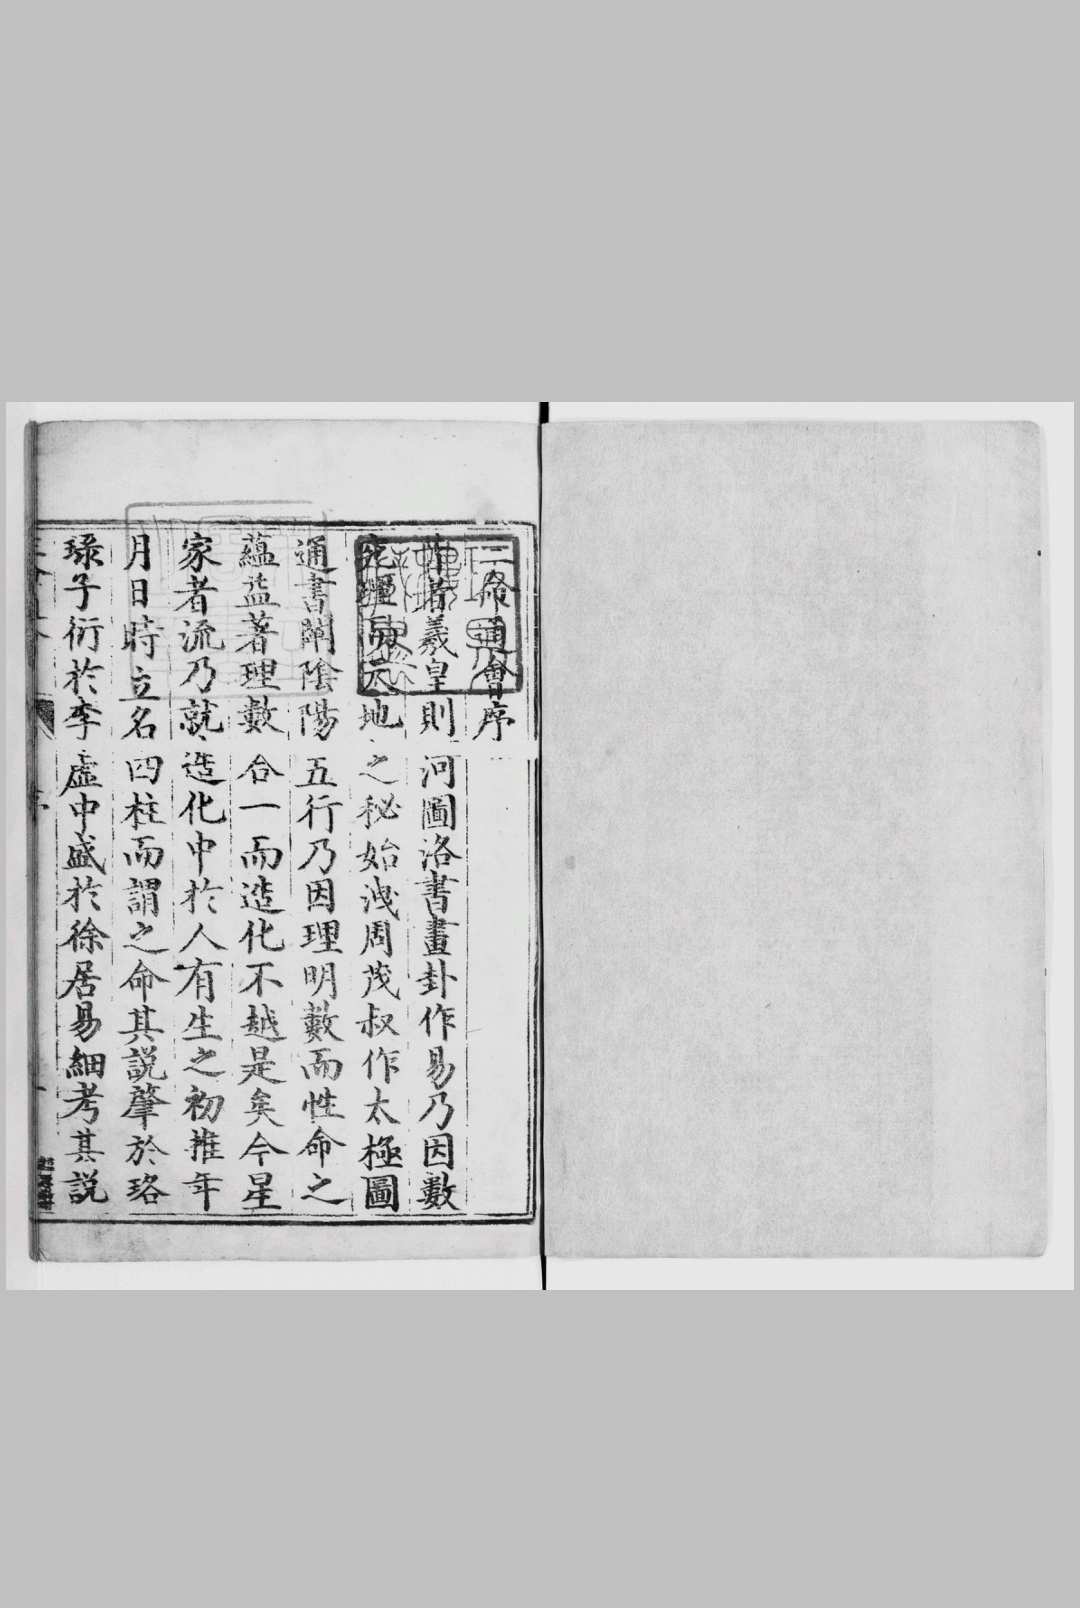 三命通會序
昔者羲皇則河圖洛書畫卦作易乃因數
究理而天地之秘始洩周茂叔作太極圖
通書闡陰陽五行乃因理明數而性命之
蘊益著理數合一而造化不越是矣今星
家者流乃就造化中於人有生之初推年
月日時立名四柱而謂之命其説肇於珞
琭子衍於李虛中盛於徐居易細考其説